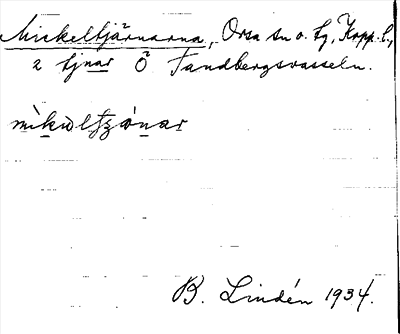 Mickeltjärnarna, Orsa sn o. tg, Kopp. l.,
2 tjnar Ö Tandbergsvasseln.
B. Lindén 1934.